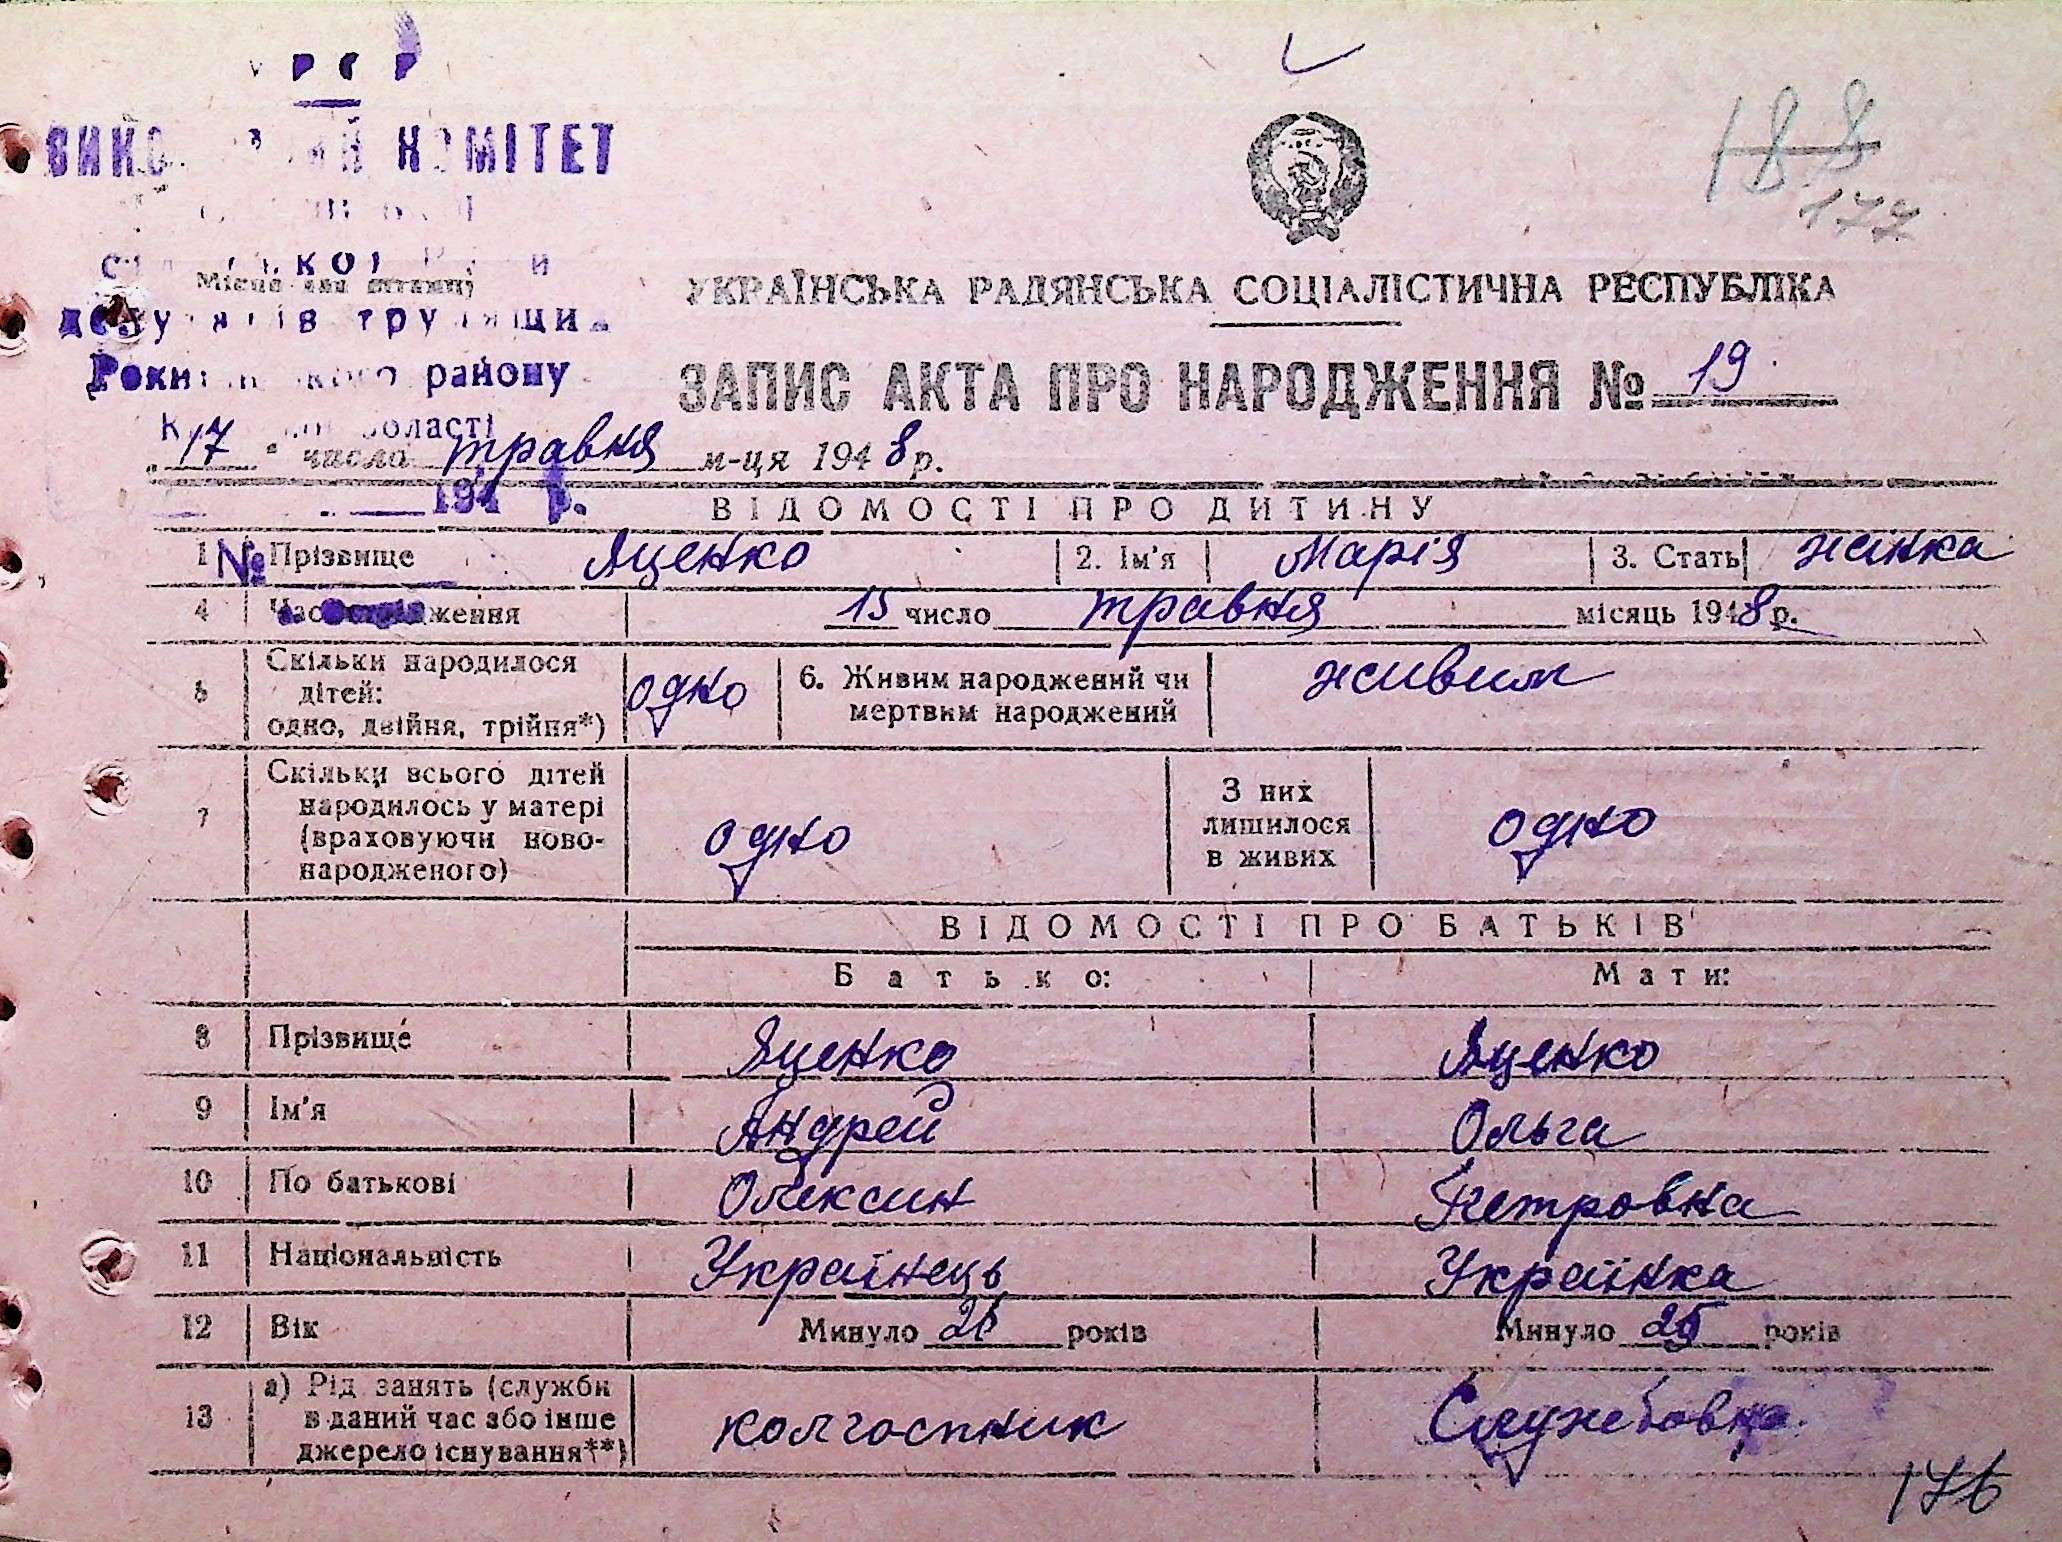 188
177
КОМІТЕТ
Місце для штампу
УКРАЇНСЬКА РАДЯНСЬКА СОЦІАЛІСТИЧНА РЕСПУБЛІКА
району
ЗАПИС АКТА ПРО НАРОДЖЕННЯ № 19
області
„17" числа травня м-ця 1948 р.
194 р.
ВІДОМОСТІ ПРО ДИТИНУ
1 № Прізвище Яценко 2. Ім'я Марія 3. Стать жінка
4 15 число травня місяць 1948 р.
5 Скільки народилося дітей: одно, двійня, трійня*) одно 6. Живим народжений чи мертвим народжений живим
7 Скільки всього дітей народилось у матері (враховуючи новонародженого) одно З них лишилося в живих одно
ВІДОМОСТІ ПРО БАТЬКІВ
Батько: Мати:
8 Прізвище Яценко Яценко
9 Ім'я Андрей Ольга
10 По батькові Олексин Петровна
11 Національність Українець Українка
12 Вік Минуло років Минуло 25 років
13 а) Рід занять (служби в даний час або інше джерело існування**) колгоспник Службовка
176